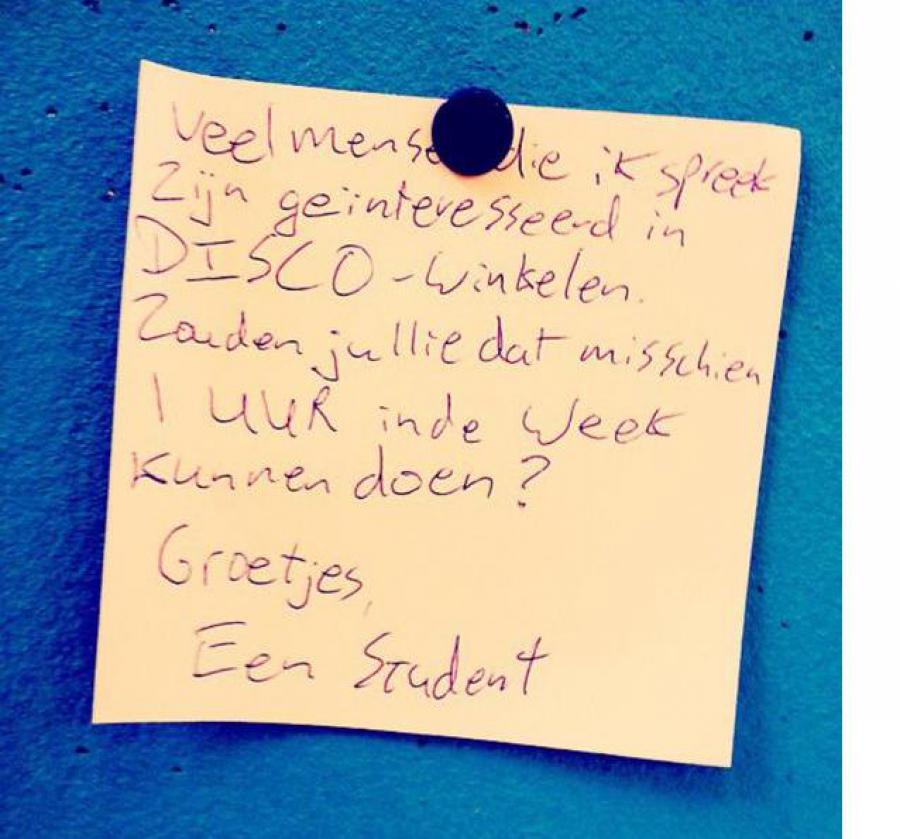 Veel mensen die ik spreek
Zijn geïnteresseerd in
DISCO-winkelen.
Zouden jullie dat misschien
1 UUR in de Week
kunnen doen?
Groetjes,
Een Student